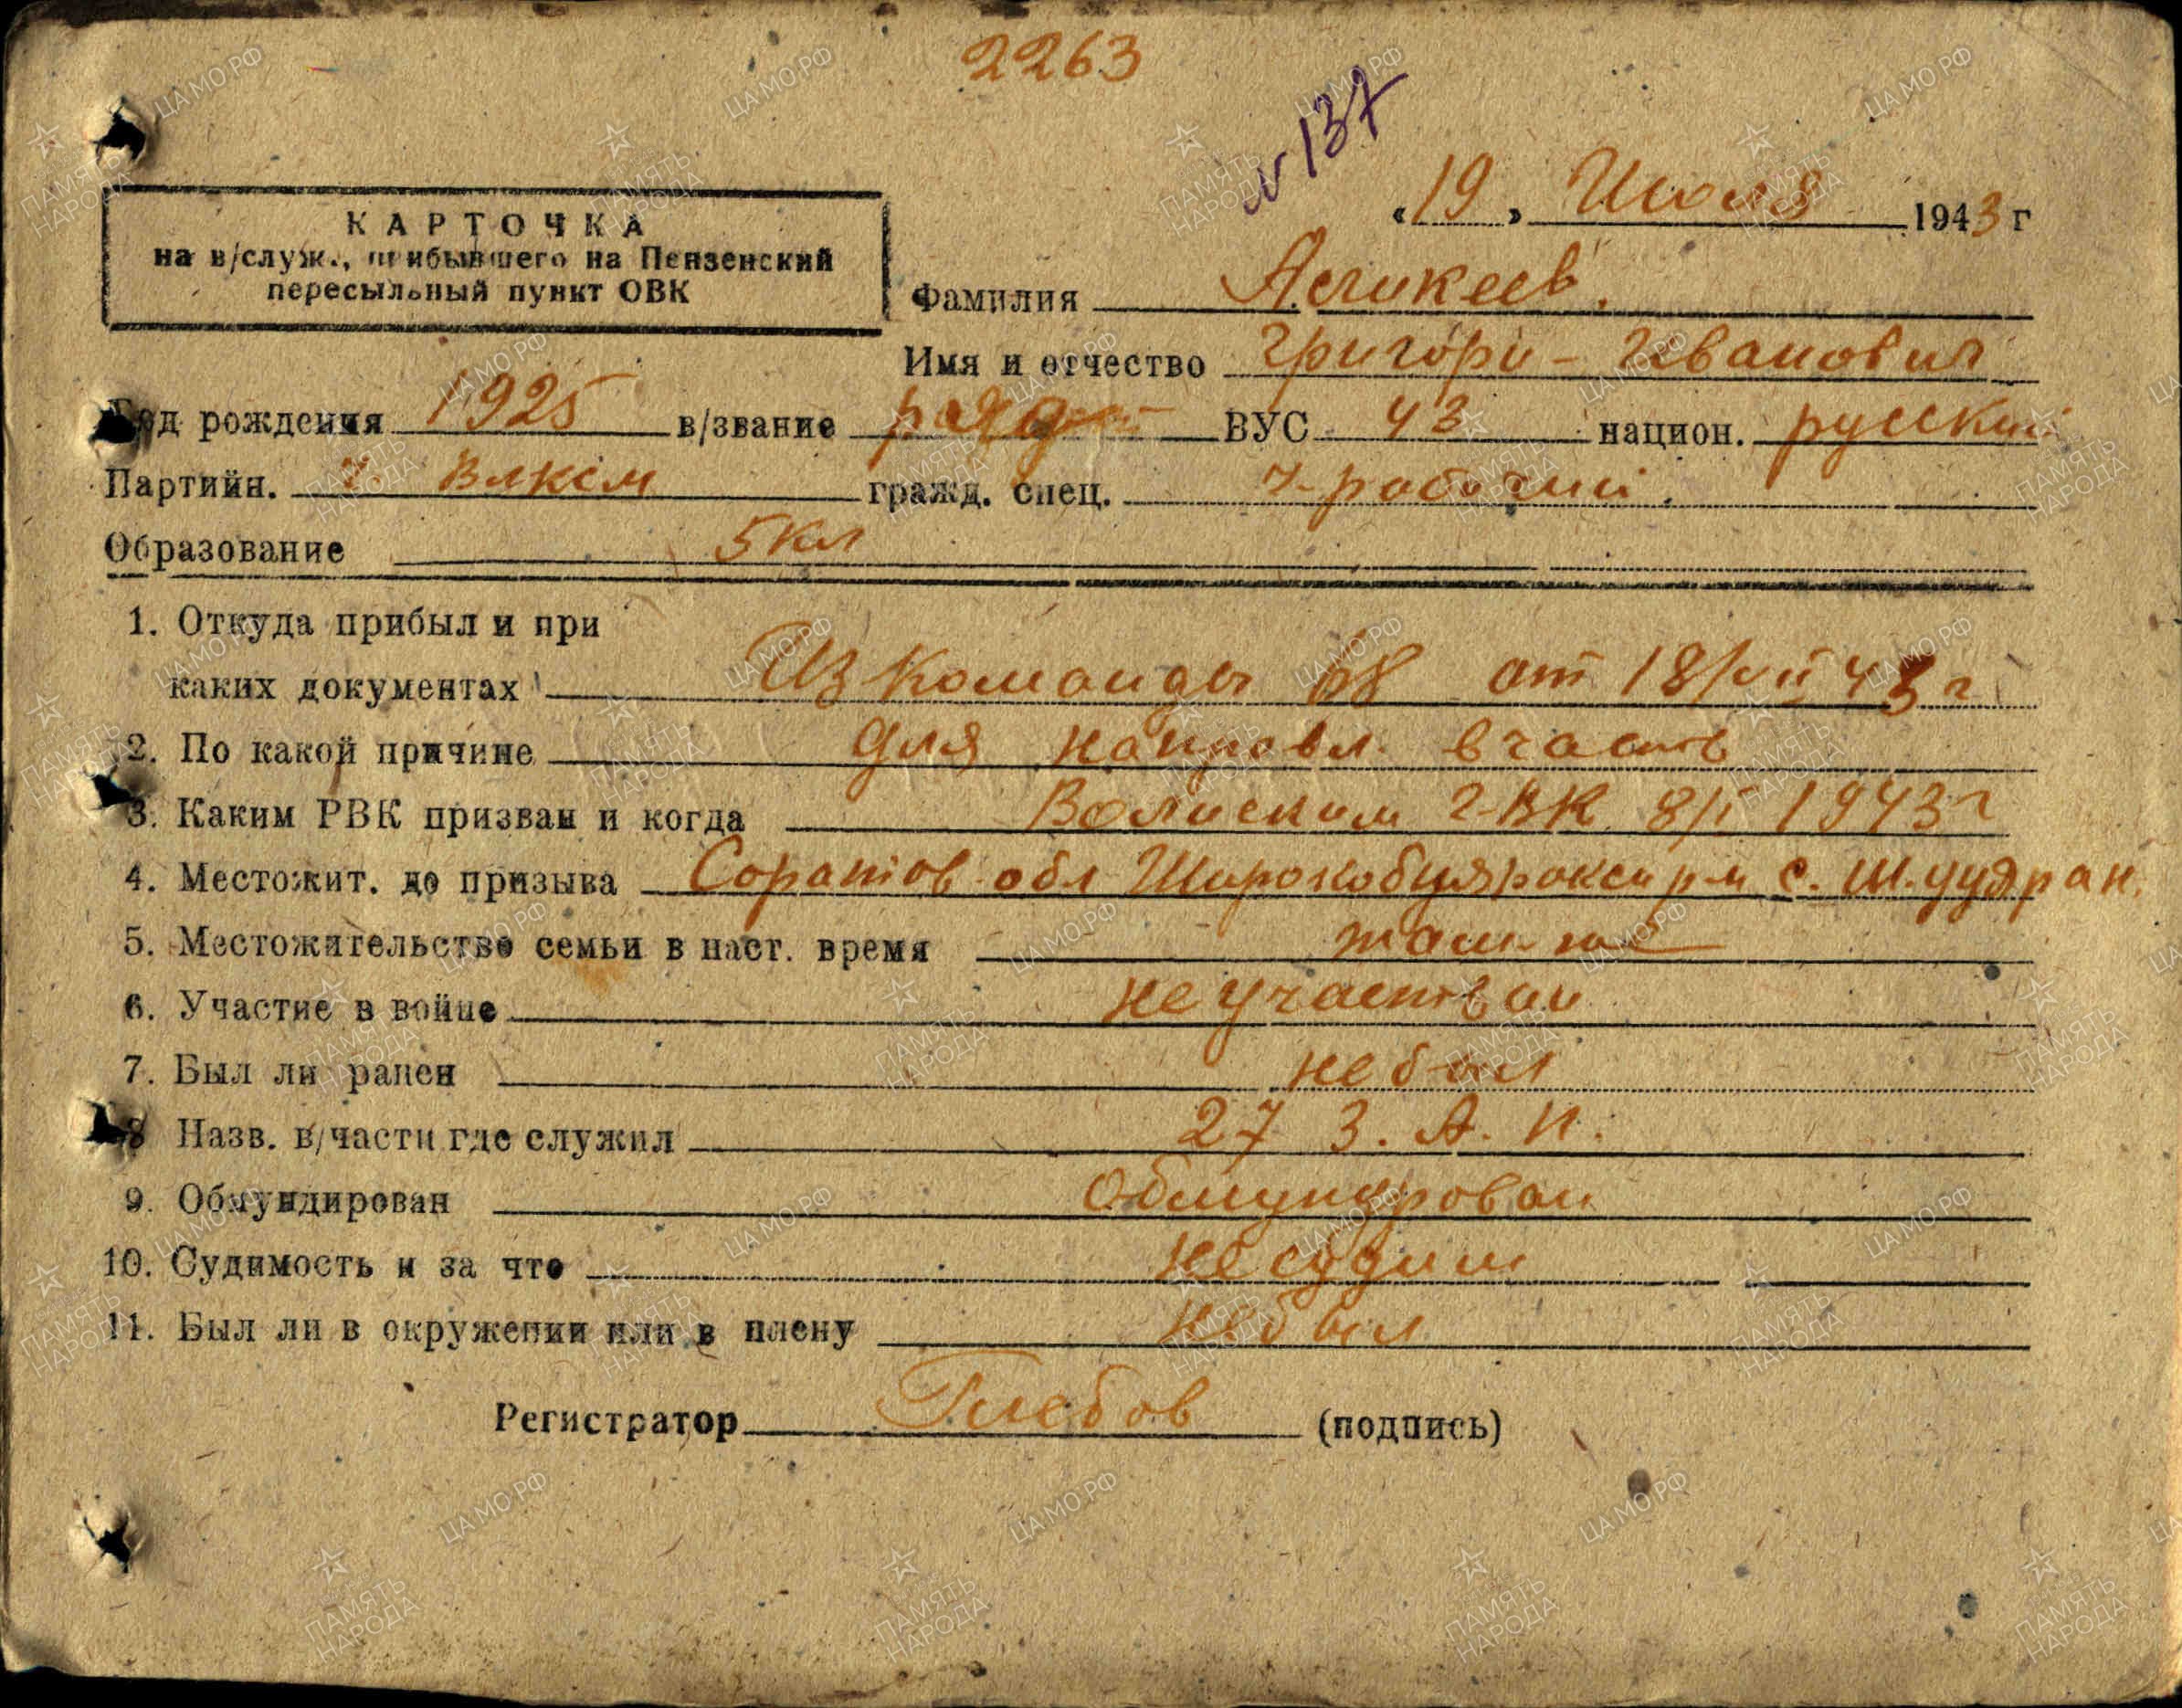 2263
№ 137
« 19 » Июля 1943 г
КАРТОЧКА
на в/служ., прибывшего на Пензенский
пересыльный пункт ОВК
Фамилия
Имя и отчество Григори - Иванович
Год рождения 1925 в/звание ВУС 43 национ. русский
Партийн. ч. ВЛКСМ гражд. спец. ч-рабочий.
Образование 5 кл
1. Откуда прибыл и при
каких документах Из команды 68 от 18/VII 43 г
2. По какой причине для направл. в часть
3. Каким РВК призван и когда Вольским ГВК 8/I 1943 г
4. Местожит. до призыва Саратов обл р-н с.
5. Местожительство семьи в наст. время там-же
6. Участие в войне не участвов
7. Был ли ранен не был
8 Назв. в/части где служил 27 З. А. П.
9. Обмундирован Обмундрован
10. Судимость и за что не судим
11. Был ли в окружении или в плену не был
Регистратор Глебов (подпись)
ЦА МО РФ
ПАМЯТЬ
НАРОДА